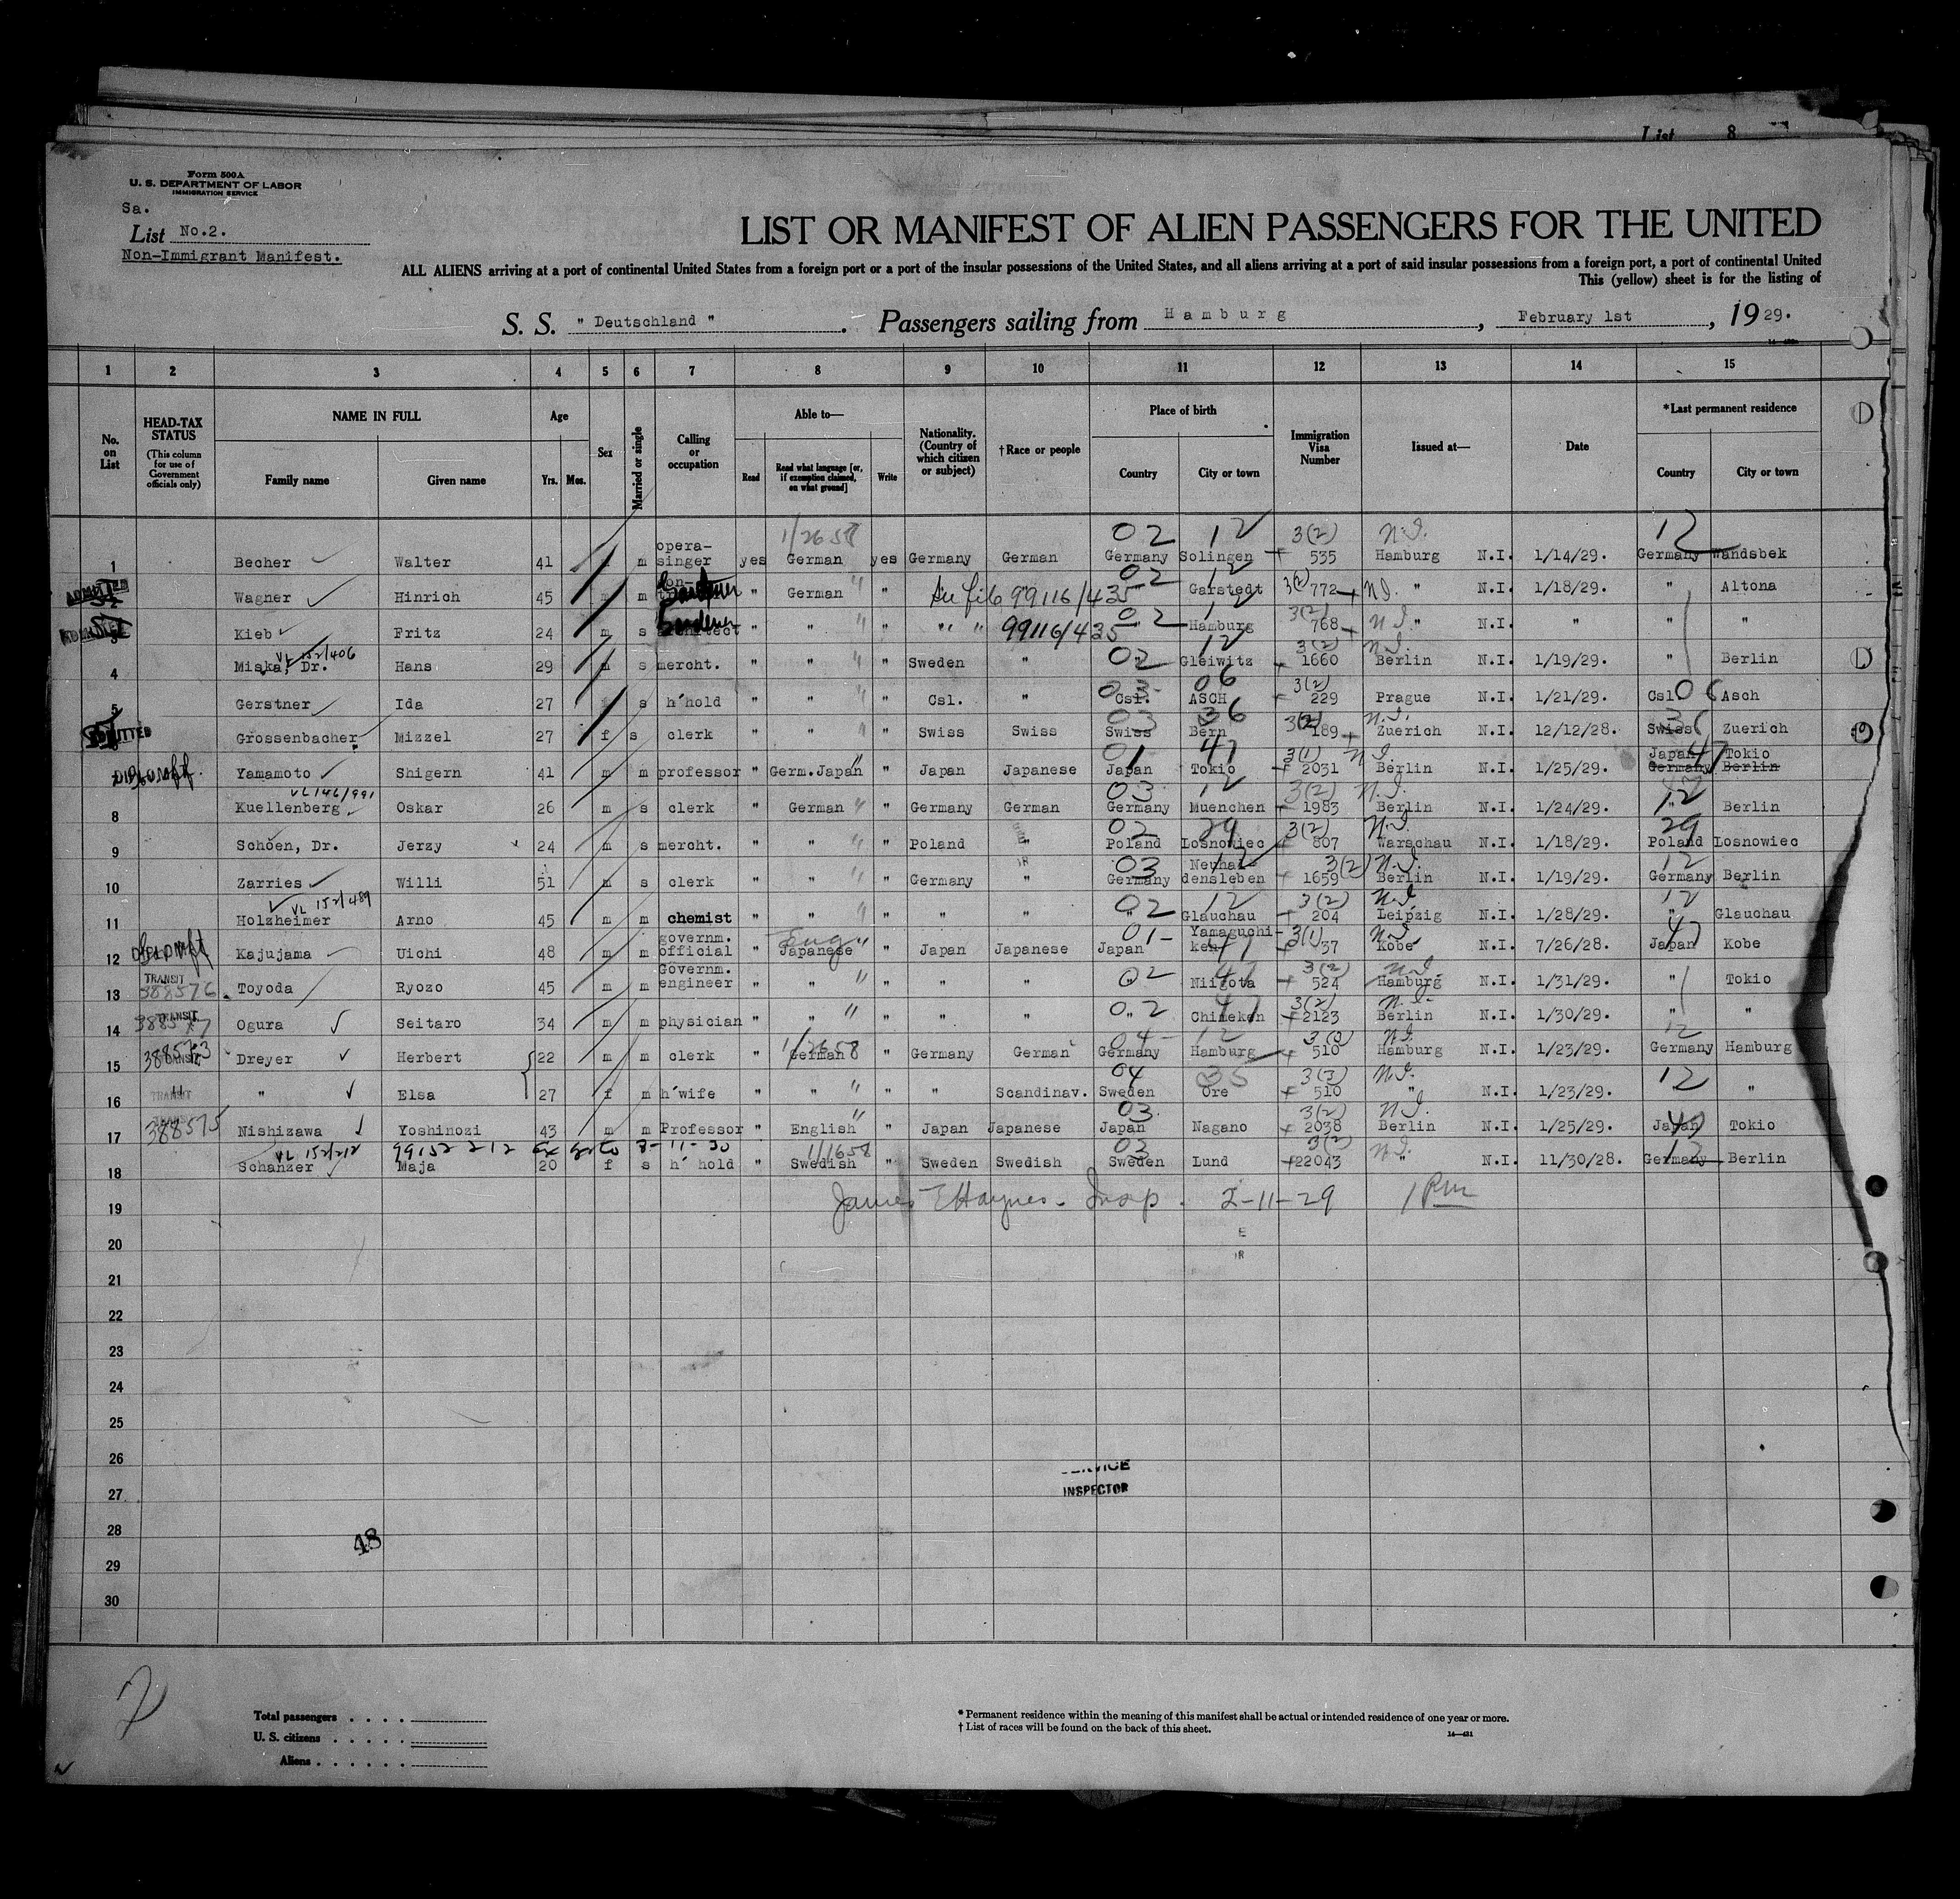 List 8
Form 500A
U. S. DEPARTMENT OF LABOR
IMMIGRATION SERVICE
Sa.
List No.2.
Non-Immigrant Manifest.
LIST OR MANIFEST OF ALIEN PASSENGERS FOR THE UNITED
ALL ALIENS arriving at a port of continental United States from a foreign port or a port of the insular possessions of the United States, and all aliens arriving at a port of said insular possessions from a foreign port, a port of continental United
This (yellow) sheet is for the listing of
S. S. " Deutschland ". Passengers sailing from Hamburg, February 1st, 1929.
1 2 3 4 5 6 7 8 9 10 11 12 13 14 15
No. on List
HEAD-TAX STATUS
(This column for use of Government officials only)
NAME IN FULL
Family name Given name
Age
Yrs. Mos.
Sex
Married or single
Calling or occupation
Able to—
Read
Read what language [or, if exemption claimed, on what ground]
Write
Nationality. (Country of which citizen or subject)
†Race or people
Place of birth
Country City or town
Immigration Visa Number
Issued at—
Date
*Last permanent residence
Country City or town
1/26 58 02 12 3(2) N.I. 12
1 Becher Walter 41 f m opera-singer yes German yes Germany German Germany Solingen 535 Hamburg N.I. 1/14/29. Germany Wandsbek
ADMITTED 02 12
2 Wagner Hinrich 45 m m Gardener " German " " See file 99116/435 Garstedt 3(2) 772 N.I. " N.I. 1/18/29. " Altona
02 12 3(2) N.I.
3 Kieb Fritz 24 m s Gardener architect " " " " " " 99116/435 Hamburg 768 " N.I. " " "
VL 152/406 02 12 3(2) N.I.
4 Miska, Dr. Hans 29 m s mercht. " " " " Sweden " " Gleiwitz 1660 Berlin N.I. 1/19/29. " Berlin
03 06 3(2) 06
5 Gerstner Ida 27 f s h'hold " " " " Csl. " Csl. ASCH 229 Prague N.I. 1/21/29. Csl Asch
ADMITTED 03 36 3(2) N.I. 36
Grossenbacher Mizzel 27 f s clerk " " " " Swiss Swiss Swiss Bern 189 Zuerich N.I. 12/12/28. Swiss Zuerich
DIPLOMAT 01 47 3(1) N.I. Japan 47 Tokio
7 Yamamoto Shigern 41 m m professor " Germ.Japan " " Japan Japanese Japan Tokio 2031 Berlin N.I. 1/25/29. Germany Berlin
VL 146/991 03 12 3(2) N.I. 12
8 Kuellenberg Oskar 26 m s clerk " German " " Germany German Germany Muenchen 1983 Berlin N.I. 1/24/29. " Berlin
02 29 3(2) N.I. 29
9 Schoen, Dr. Jerzy 24 m s mercht. " " " " Poland " Poland Losnowiec 807 Warschau N.I. 1/18/29. Poland Losnowiec
03 12 3(2) N.I. 12
10 Zarries Willi 51 m s clerk " " " " Germany " Germany Neuhaldensleben 1659 Berlin N.I. 1/19/29. Germany Berlin
VL 152/489 02 12 3(2) N.I. 12
11 Holzheimer Arno 45 m m chemist " " " " " " " Glauchau 204 Leipzig N.I. 1/28/29. " Glauchau
DIPLOMAT Eng 01- 47 3(1) N.I. 47
12 Kajujama Uichi 48 m m governm. official " Japanese " " Japan Japanese Japan Yamaguchi-ken 37 Kobe N.I. 7/26/28. Japan Kobe
TRANSIT 02 47 3(2) N.I.
13 388576 Toyoda Ryozo 45 m m Governm. engineer " " " " " " Niigota 524 Hamburg N.I. 1/31/29. " Tokio
TRANSIT 02 47 3(2) N.I.
14 388577 Ogura Seitaro 34 m m physician " " " " " " " Chimeken 2123 Berlin N.I. 1/30/29. " "
1/26 58 04- 12 3(3) N.I. 12
15 TRANSIT Dreyer Herbert 22 m m clerk " German " Germany German Germany Hamburg 510 Hamburg N.I. 1/23/29. Germany Hamburg
04 35 3(3) N.I. 12
16 TRANSIT " " Elsa 27 f m h'wife " " " " " Scandinav. Sweden Ore 510 " N.I. 1/23/29. "
TRANSIT 03 3(2) N.I.
17 388575 Nishizawa Yoshinozi 43 m m Professor " English " " Japan Japanese Japan Nagano 2038 Berlin N.I. 1/25/29. Japan Tokio
VL 152/212 99152 212 8-11-30 1/16 58 03 3(2) N.I. 12
18 Schanzer Maja 20 f s h'hold " Swedish " Sweden Swedish Sweden Lund 22043 " N.I. 11/30/28. Germany Berlin
19 James E Haynes - Insp. 2-11-29 1 PM
20
21
22
23
24
25
26
SERVICE
27 INSPECTOR
28
48
29
30
2
Total passengers . . . .
U. S. citizens . . . . .
Aliens . . . . . .
* Permanent residence within the meaning of this manifest shall be actual or intended residence of one year or more.
† List of races will be found on the back of this sheet.
14—431